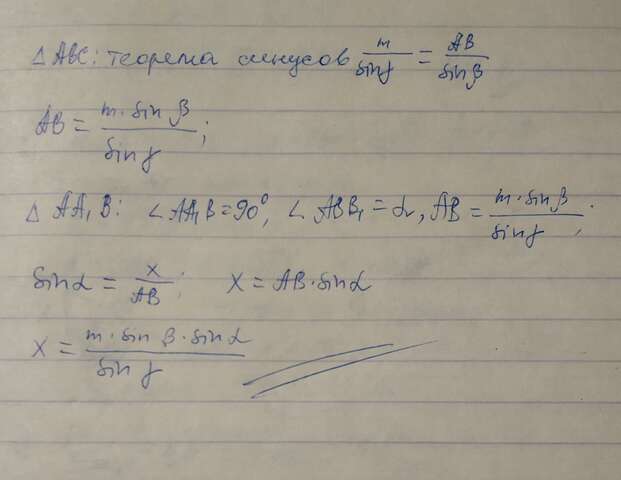 △ ABC: теорема синусов m/sinγ = AB/sin β
AB = m·sin β/sin γ;
△ AA₁B: ∠AA₁B=90°, ∠ABB₁=α, AB = m·sin β/sin γ;
sin α = x/AB; x = AB·sin α
x = m·sin β·sin α/sin γ